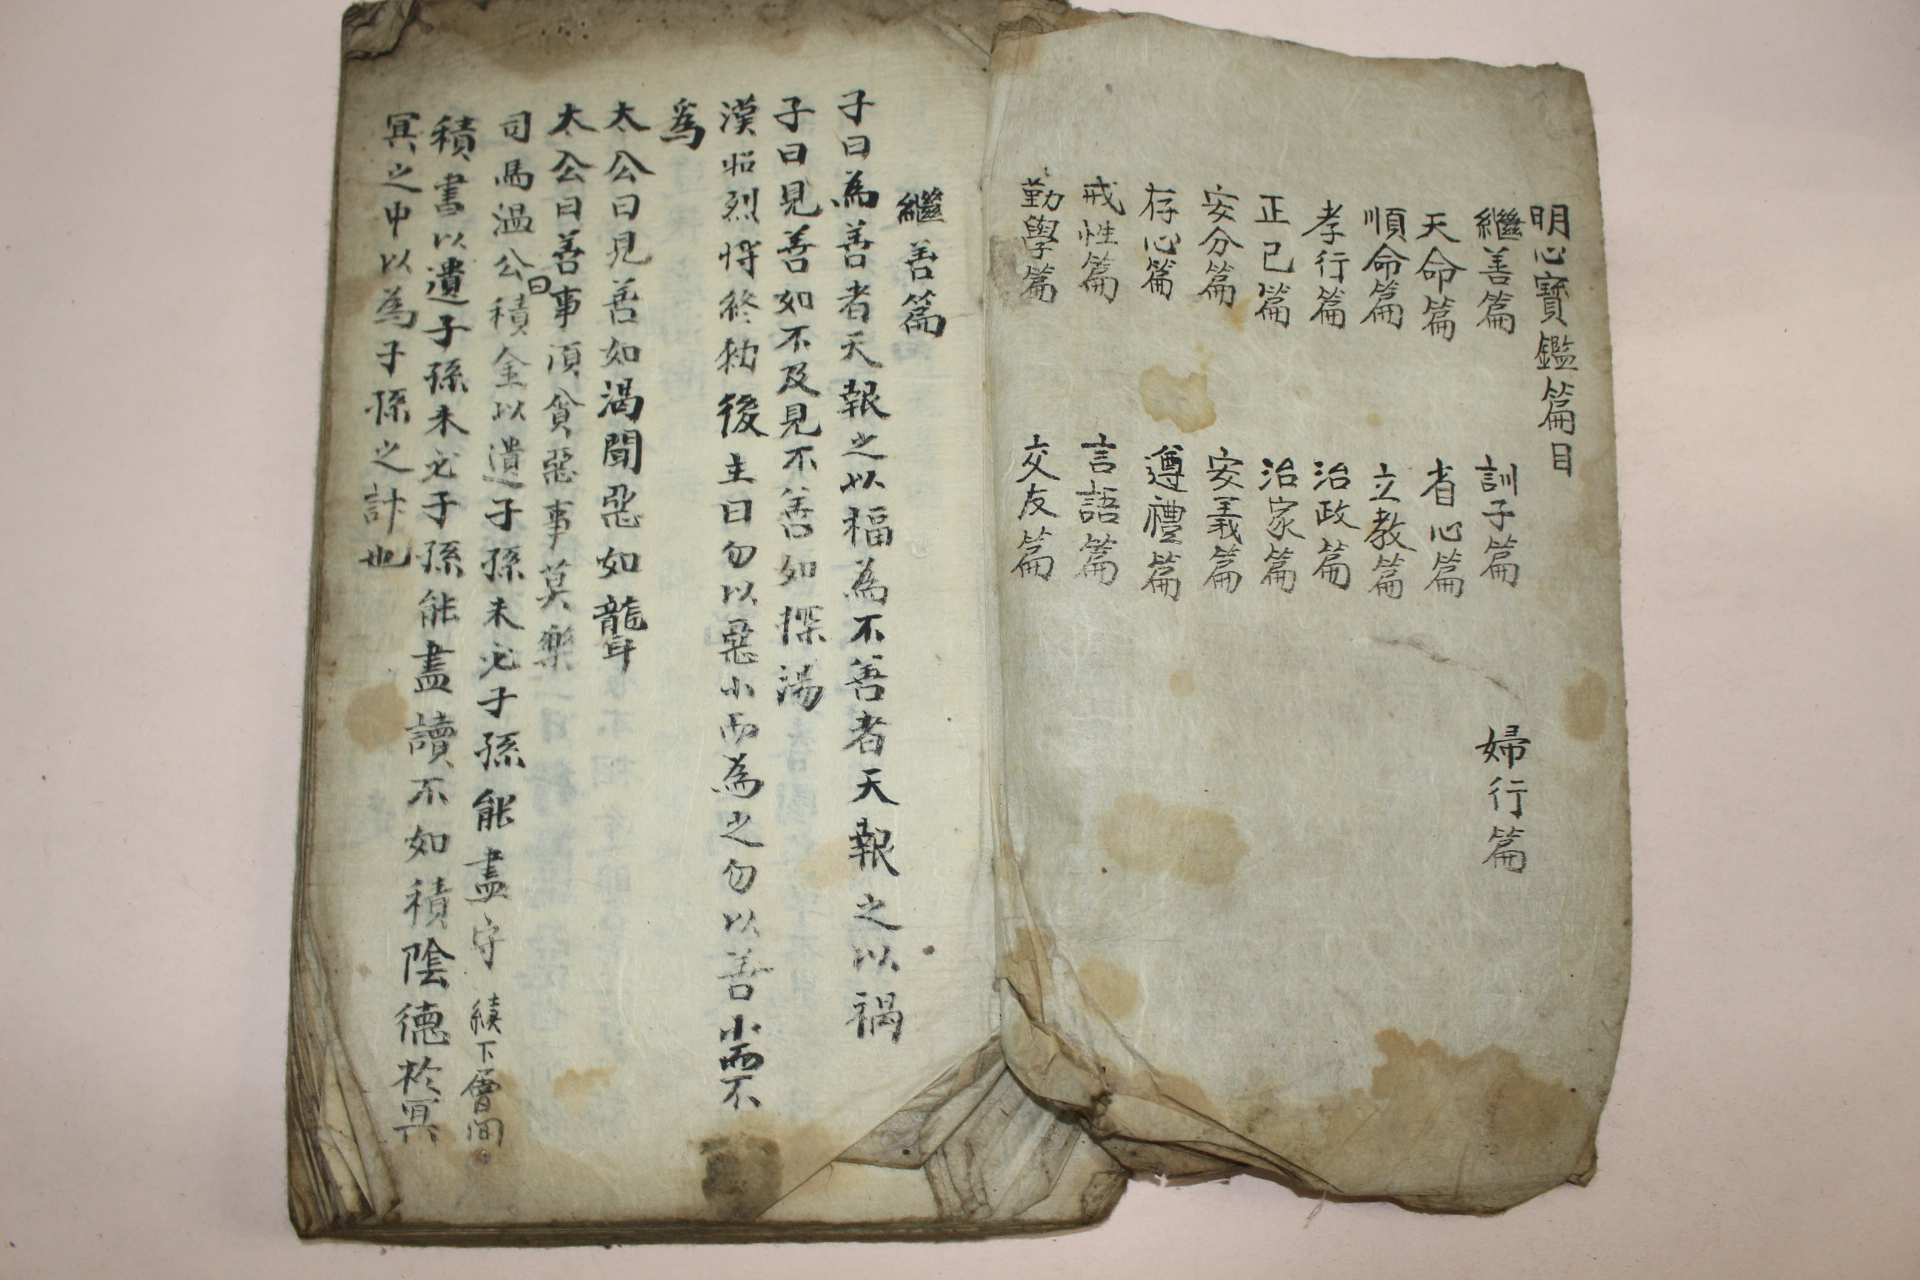 明心寶鑑篇目
繼善篇 訓子篇 婦行篇
天命篇 省心篇
順命篇 立教篇
孝行篇 治政篇
正己篇 治家篇
安分篇 安義篇
存心篇 遵禮篇
戒性篇 言語篇
勤學篇 交友篇
繼善篇
子曰為善者天報之以福為不善者天報之以禍
子曰見善如不及見不善如探湯
漢昭烈將終勅後主曰勿以惡小而為之勿以善小而不
爲
太公曰見善如渴聞惡如聾
太公曰善事須貪惡事莫樂
司馬温公曰積金以遺子孫未必子孫能盡守 續下層間
積書以遺子孫未必子孫能盡讀不如積陰德於冥
冥之中以為子孫之計也